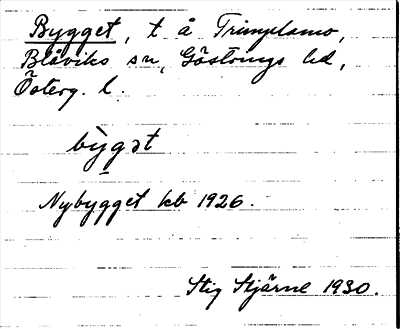 Bygget, t å Trimplamo,
Blåviks sn, Göstrings hd,
Österg. l.
bỳgət
Nybygget kb 1926.
Stig Stjärne 1930.